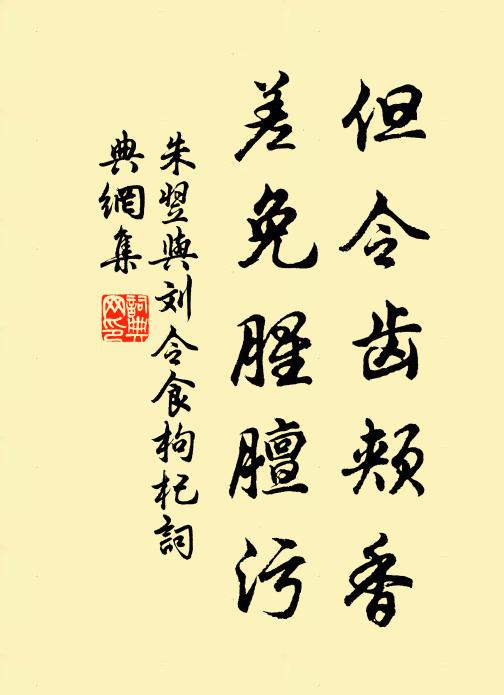 但令齿颊香
差免腥膻污
朱翌與刘令食枸杞詞
典網集
詞典
网印